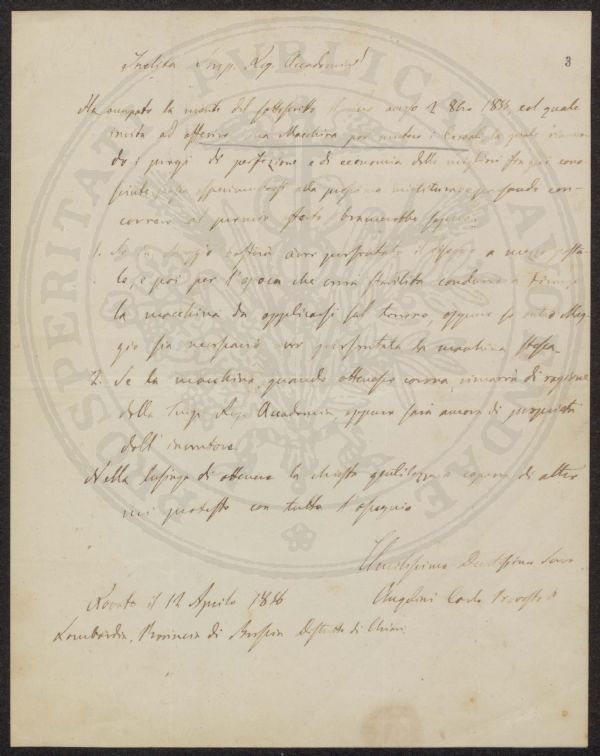 3
PROSPERITATI PUBLICAE AUGENDAE
Inclita Imp. Reg Accademia!
Ha occupato la mente del sottoscritto 1856, col quale
invita ad offerire una Macchina per mietere i Cereali, la quale
i pregi di perfezione e di economia delle migliori
esperimentarsi alla prossima mietitura, e potendo con-
correre al premio offerto bramerebbe sapere.
1. Se in Maggio basterà aver presentato il disegno a
e poi per l'epoca che verrà stabilita condurre a
la macchina da applicarsi sul terreno, oppure se entro Mag-
gio sia necessario aver presentata la macchina stessa.
2. Se la macchina, quando ottenesse corona, rimarrà di ragione
della Imp. Reg. Accademia oppure sarà ancora di proprietà
dell'inventore.
Nella lusinga di ottenere la chiesta gentilezza di altro
mi protesto con tutto l'ossequio
Umilissimo Servo
Angelini Carlo
Rovato il 12 Aprile 1856
Lombardia, Provincia di Brescia Distretto di Chiari.